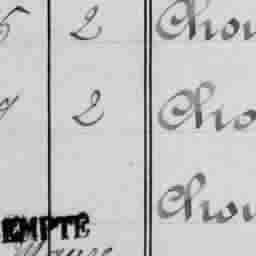 5 2 Chou
9 2 Cho
Chou
EMPTE